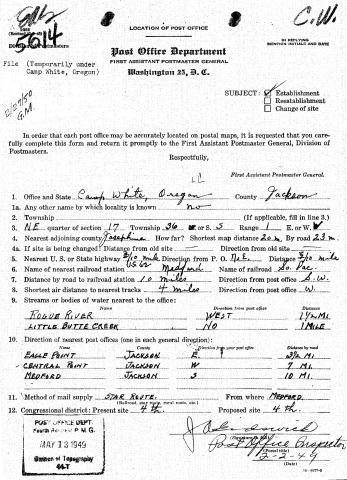 C.W.
5614
LOCATION OF POST OFFICE
IN REPLYING
MENTION INITIALS AND DATE
Post Office Department
FIRST ASSISTANT POSTMASTER GENERAL
Washington 25, D. C.
File (Temporarily under
Camp White, Oregon)
G.M.
SUBJECT: Establishment
Reestablishment
Change of site
In order that each post office may be accurately located on postal maps, it is requested that you carefully
complete this form and return it promptly to the First Assistant Postmaster General, Division of
Postmasters.
Respectfully,
First Assistant Postmaster General.
1. Office and State Camp White, Oregon County Jackson
1a. Any other name by which locality is known no
2. Township (If applicable, fill in line 3.)
3. NE quarter of section 17 Township 36 or S. S Range 1 E. or W. W
4. Nearest adjoining county Josephine How far? Shortest map distance 20 m By road 23 m.
4a. If site is being changed? Distance from old site Direction from old site
5. Nearest U. S. or State highway Direction from P. O. Distance
6. Name of nearest railroad station Medford Name of railroad So. Pac.
7. Distance by road to railroad station 10 miles Direction from post office S.W.
8. Shortest air distance to nearest tracks 4 miles Direction from post office W.
9. Streams or bodies of water nearest to the office:
Name Direction from post office Distance
ROGUE RIVER WEST 1½ MI
LITTLE BUTTE CREEK NO 1 MILE
10. Direction of nearest post offices (one in each general direction):
Name County Direction from your post office Distance by road
EAGLE POINT JACKSON E. 3½ MI.
CENTRAL POINT JACKSON W 7 MI.
MEDFORD JACKSON S 10 MI.
11. Method of mail supply STAR ROUTE. From MEDFORD.
(Railroad, star route, rural route, etc.)
12. Congressional district: Present site 4th. Proposed site 4th.
POST OFFICE DEPT.
Fourth P. M. G.
MAY 13 1949
Division of Topography
Post Office Inspector
(Date)